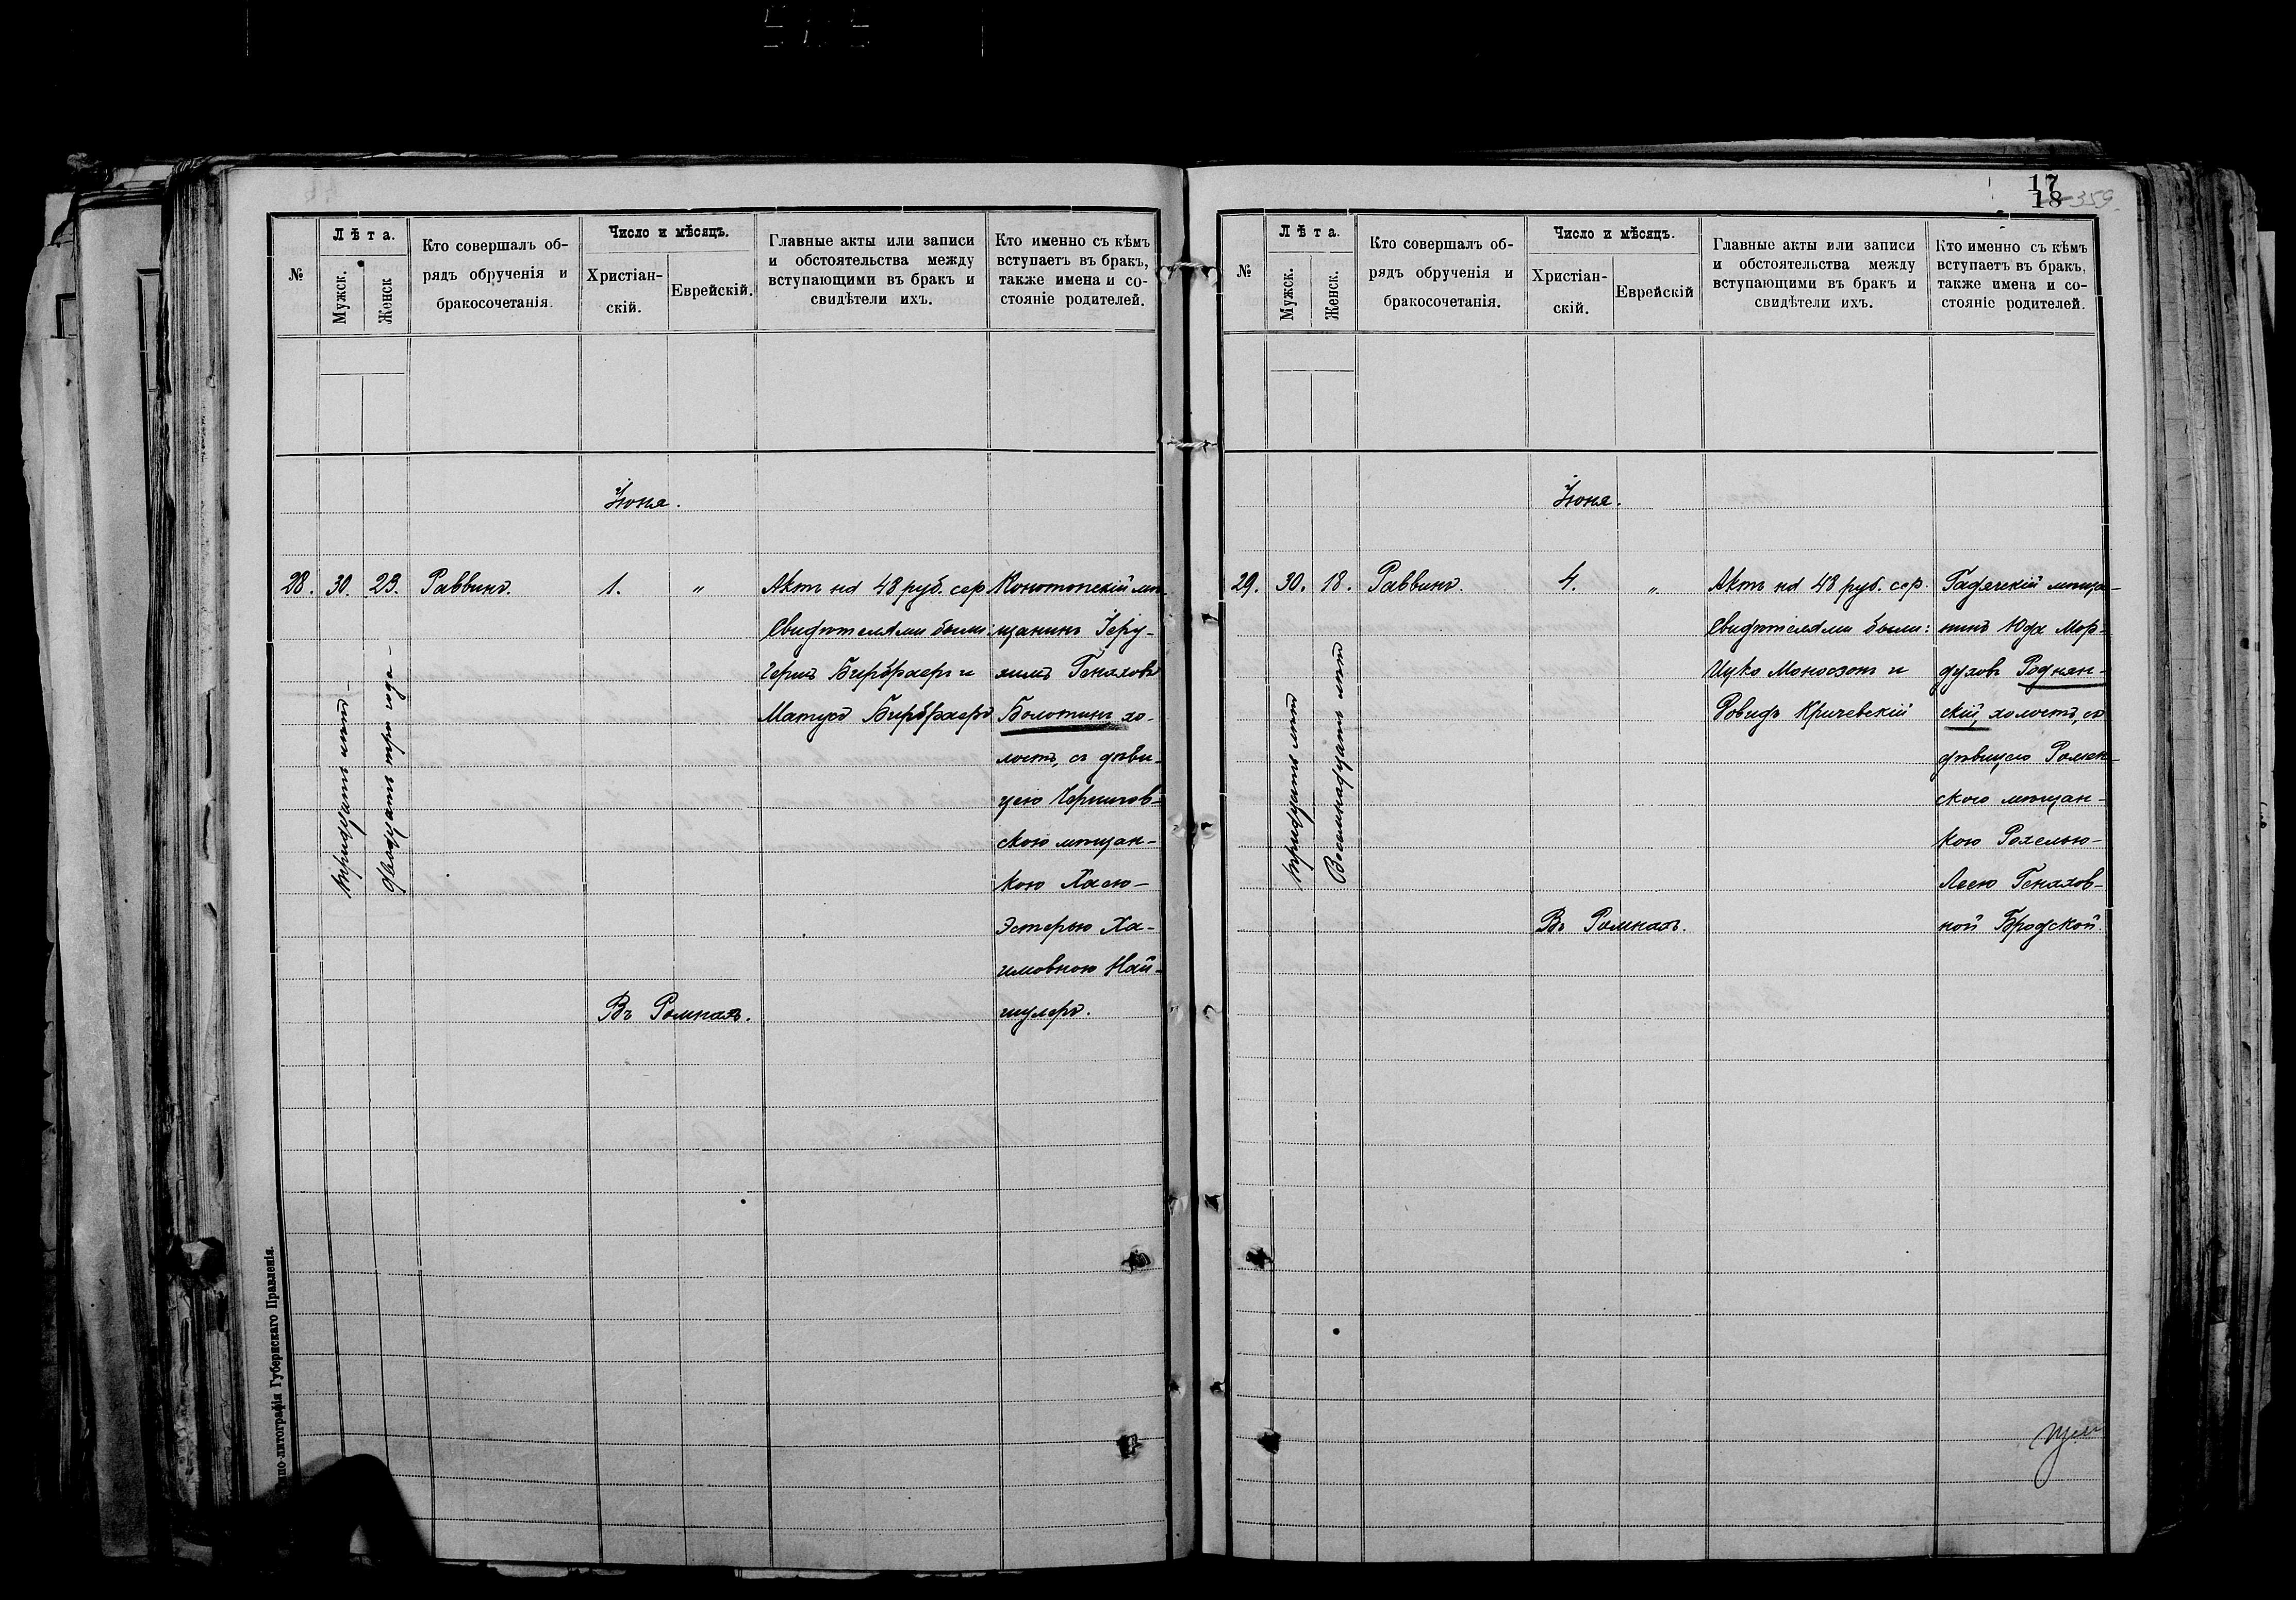 №
Лѣта.
Мужск.
Женск
Кто совершалъ об-
рядъ обрученія и
бракосочетанія.
Число и мѣсяцъ.
Христіан-
скій.
Еврейскій.
Главные акты или записи
и обстоятельства между
вступающими въ бракъ и
свидѣтели ихъ.
Кто именно съ кѣмъ
вступаетъ въ бракъ,
также имена и со-
стояніе родителей.
Іюня.
28. 30. 23. Раввинъ. 1. "
тридцать лѣтъ
двадцать три года
Актъ на 48 руб. сер.
Свидѣтелями были:
Герцъ Бирбраеръ и
Матусъ Бирбраеръ
Конотопскій мѣ-
щанинъ Іеру-
химъ Генаховъ
Болотинъ, хо-
лостъ, съ дѣви-
цею Чернигов-
скою мѣщан-
кою Хасею-
Эстерью Ха-
имовною Най-
шулеръ.
Въ Ромнахъ.
по-литографія Губернскаго Правленія.
17
18
359.
№
Лѣта.
Мужск.
Женск.
Кто совершалъ об-
рядъ обрученія и
бракосочетанія.
Число и мѣсяцъ.
Христіан-
скій.
Еврейскій
Главные акты или записи
и обстоятельства между
вступающими въ бракъ и
свидѣтели ихъ.
Кто именно съ кѣмъ
вступаетъ въ бракъ,
также имена и со-
стояніе родителей.
Іюня.
29. 30. 18. Раввинъ. 4. "
тридцать лѣтъ
Восемнадцать лѣтъ
Актъ на 48 руб. сер.
Свидѣтелями были:
Ицко Моносзонъ и
Довидъ Кричевскій
Гадячскій мѣща-
нинъ Юда Мор-
духовъ Роднян-
скій, холостъ, съ
дѣвицею Ромен-
скою мѣщан-
кою Рохелью-
Леею Генахов-
ной Бродской.
Въ Ромнахъ.